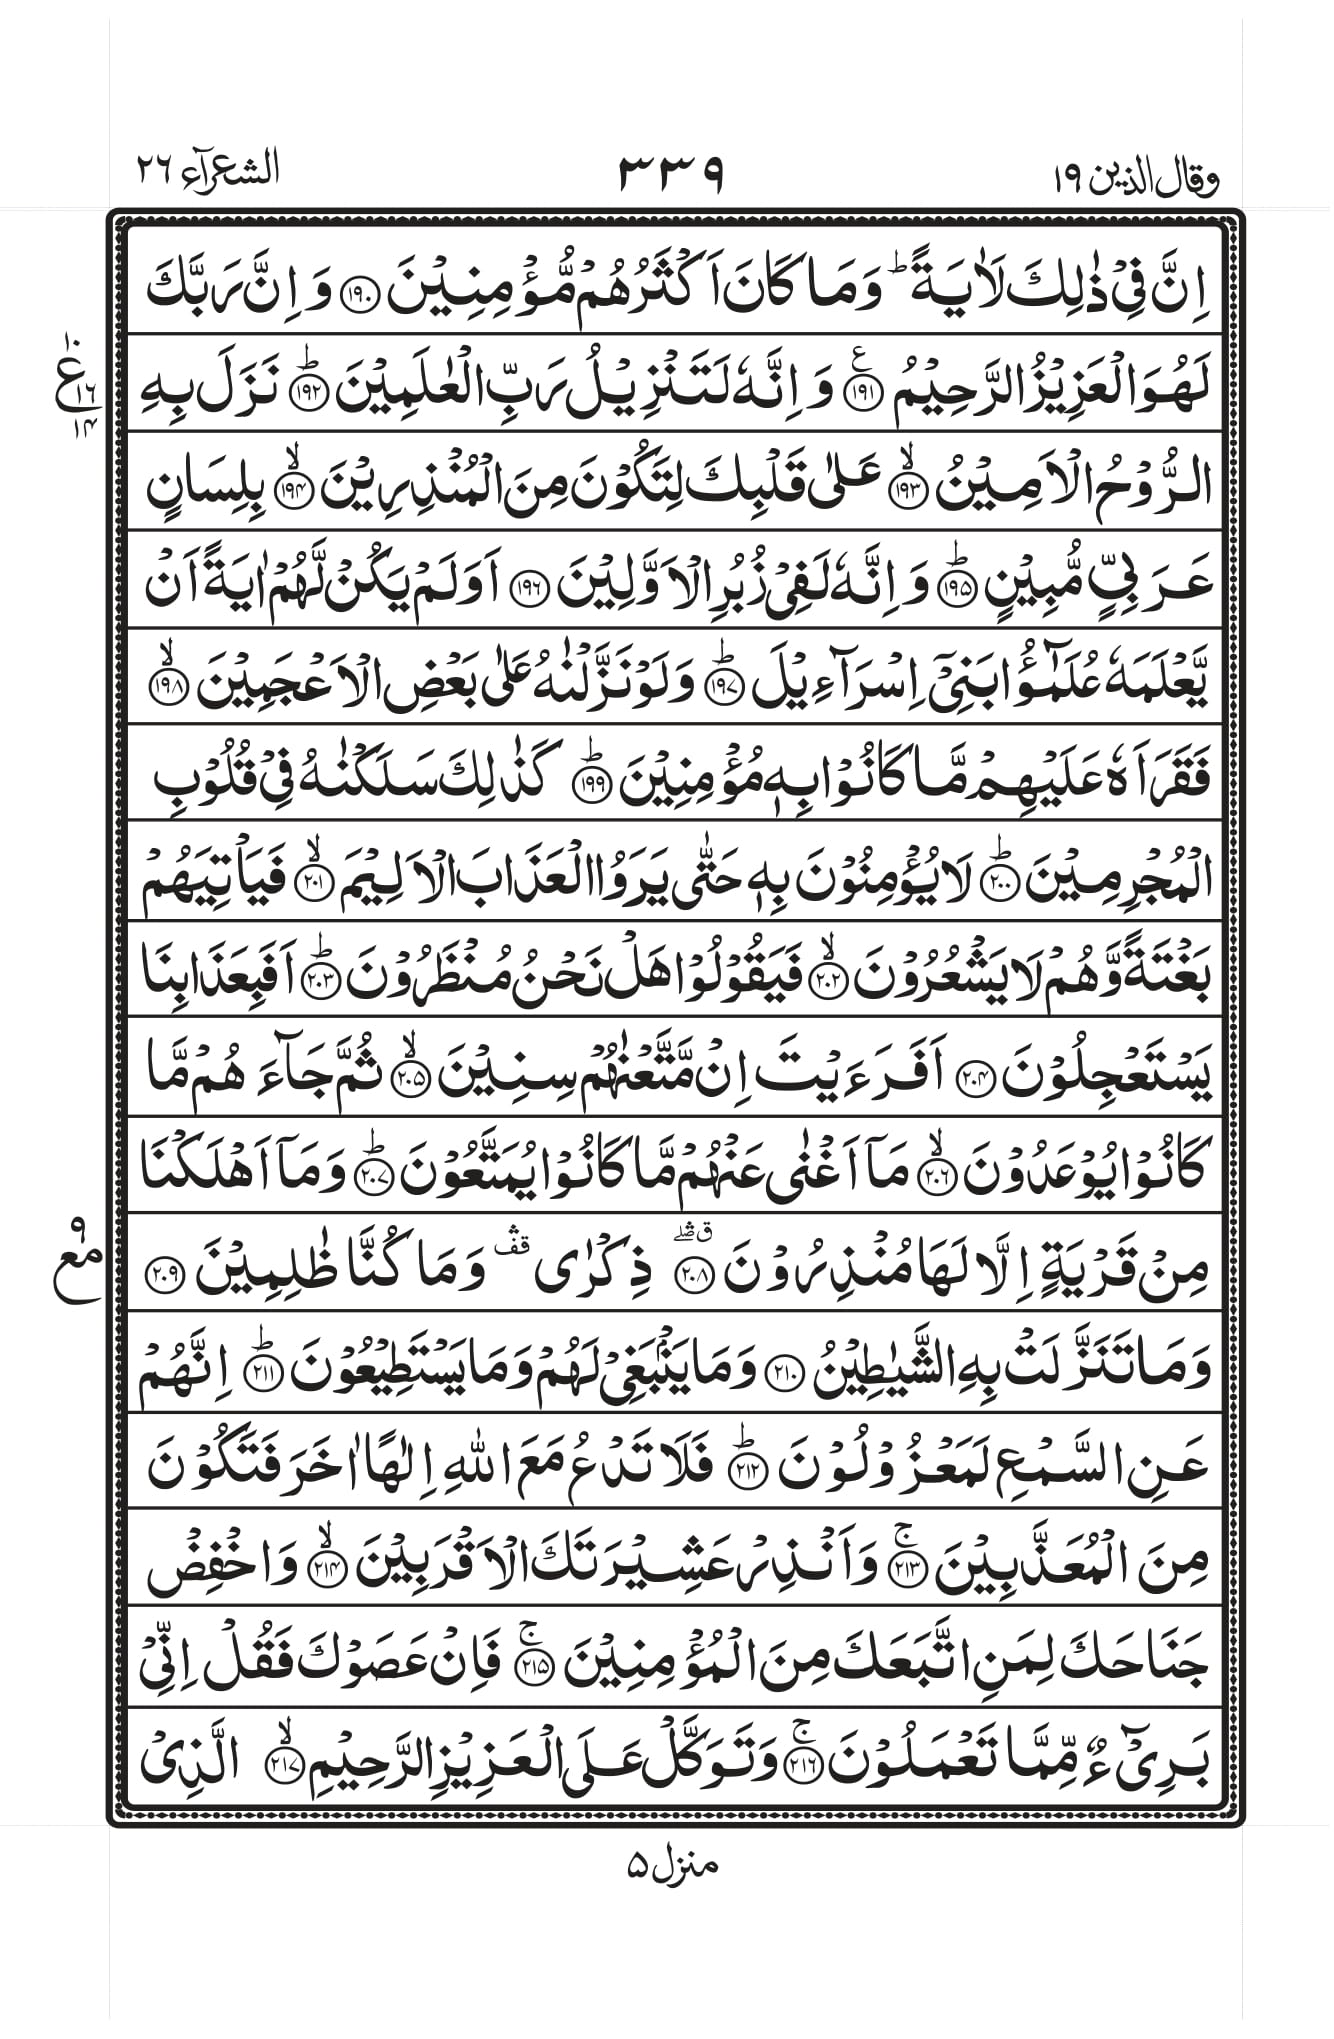 وقال الذین ۱۹
۳۳۹
الشعرآء ۲۶
اِنَّ فِیْ ذٰلِكَ لَاٰیَةً ؕ وَ مَا كَانَ اَكْثَرُهُمْ مُّؤْمِنِیْنَ ۝۱۹۰ وَ اِنَّ رَبَّكَ
لَهُوَ الْعَزِیْزُ الرَّحِیْمُ ۝۱۹۱ ع وَ اِنَّهٗ لَتَنْزِیْلُ رَبِّ الْعٰلَمِیْنَ ۝۱۹۲ؕ نَزَلَ بِهِ
الرُّوْحُ الْاَمِیْنُ ۝۱۹۳ۙ عَلٰی قَلْبِكَ لِتَكُوْنَ مِنَ الْمُنْذِرِیْنَ ۝۱۹۴ۙ بِلِسَانٍ
عَرَبِیٍّ مُّبِیْنٍ ۝۱۹۵ؕ وَ اِنَّهٗ لَفِیْ زُبُرِ الْاَوَّلِیْنَ ۝۱۹۶ اَوَ لَمْ یَكُنْ لَّهُمْ اٰیَةً اَنْ
یَّعْلَمَهٗ عُلَمٰٓؤُا بَنِیْۤ اِسْرَآءِیْلَ ۝۱۹۷ؕ وَ لَوْ نَزَّلْنٰهُ عَلٰی بَعْضِ الْاَعْجَمِیْنَ ۝۱۹۸ۙ
فَقَرَاَهٗ عَلَیْهِمْ مَّا كَانُوْا بِهٖ مُؤْمِنِیْنَ ۝۱۹۹ؕ كَذٰلِكَ سَلَكْنٰهُ فِیْ قُلُوْبِ
الْمُجْرِمِیْنَ ۝۲۰۰ؕ لَا یُؤْمِنُوْنَ بِهٖ حَتّٰی یَرَوُا الْعَذَابَ الْاَلِیْمَ ۝۲۰۱ۙ فَیَاْتِیَهُمْ
بَغْتَةً وَّ هُمْ لَا یَشْعُرُوْنَ ۝۲۰۲ۙ فَیَقُوْلُوْا هَلْ نَحْنُ مُنْظَرُوْنَ ۝۲۰۳ؕ اَفَبِعَذَابِنَا
یَسْتَعْجِلُوْنَ ۝۲۰۴ اَفَرَءَیْتَ اِنْ مَّتَّعْنٰهُمْ سِنِیْنَ ۝۲۰۵ۙ ثُمَّ جَآءَهُمْ مَّا
كَانُوْا یُوْعَدُوْنَ ۝۲۰۶ۙ مَاۤ اَغْنٰی عَنْهُمْ مَّا كَانُوْا یُمَتَّعُوْنَ ۝۲۰۷ؕ وَ مَاۤ اَهْلَكْنَا
مِنْ قَرْیَةٍ اِلَّا لَهَا مُنْذِرُوْنَ ۝۲۰۸ ق صلے ذِكْرٰی قف وَ مَا كُنَّا ظٰلِمِیْنَ ۝۲۰۹
وَ مَا تَنَزَّلَتْ بِهِ الشَّیٰطِیْنُ ۝۲۱۰ وَ مَا یَنْۢبَغِیْ لَهُمْ وَ مَا یَسْتَطِیْعُوْنَ ۝۲۱۱ؕ اِنَّهُمْ
عَنِ السَّمْعِ لَمَعْزُوْلُوْنَ ۝۲۱۲ؕ فَلَا تَدْعُ مَعَ اللّٰهِ اِلٰهًا اٰخَرَ فَتَكُوْنَ
مِنَ الْمُعَذَّبِیْنَ ۝۲۱۳ۚ وَ اَنْذِرْ عَشِیْرَتَكَ الْاَقْرَبِیْنَ ۝۲۱۴ۙ وَ اخْفِضْ
جَنَاحَكَ لِمَنِ اتَّبَعَكَ مِنَ الْمُؤْمِنِیْنَ ۝۲۱۵ۚ فَاِنْ عَصَوْكَ فَقُلْ اِنِّیْ
بَرِیْٓءٌ مِّمَّا تَعْمَلُوْنَ ۝۲۱۶ۚ وَ تَوَكَّلْ عَلَی الْعَزِیْزِ الرَّحِیْمِ ۝۲۱۷ۙ الَّذِیْ
۱۰
ع ۱۶
۱۴
۹
مع
منزل ۵